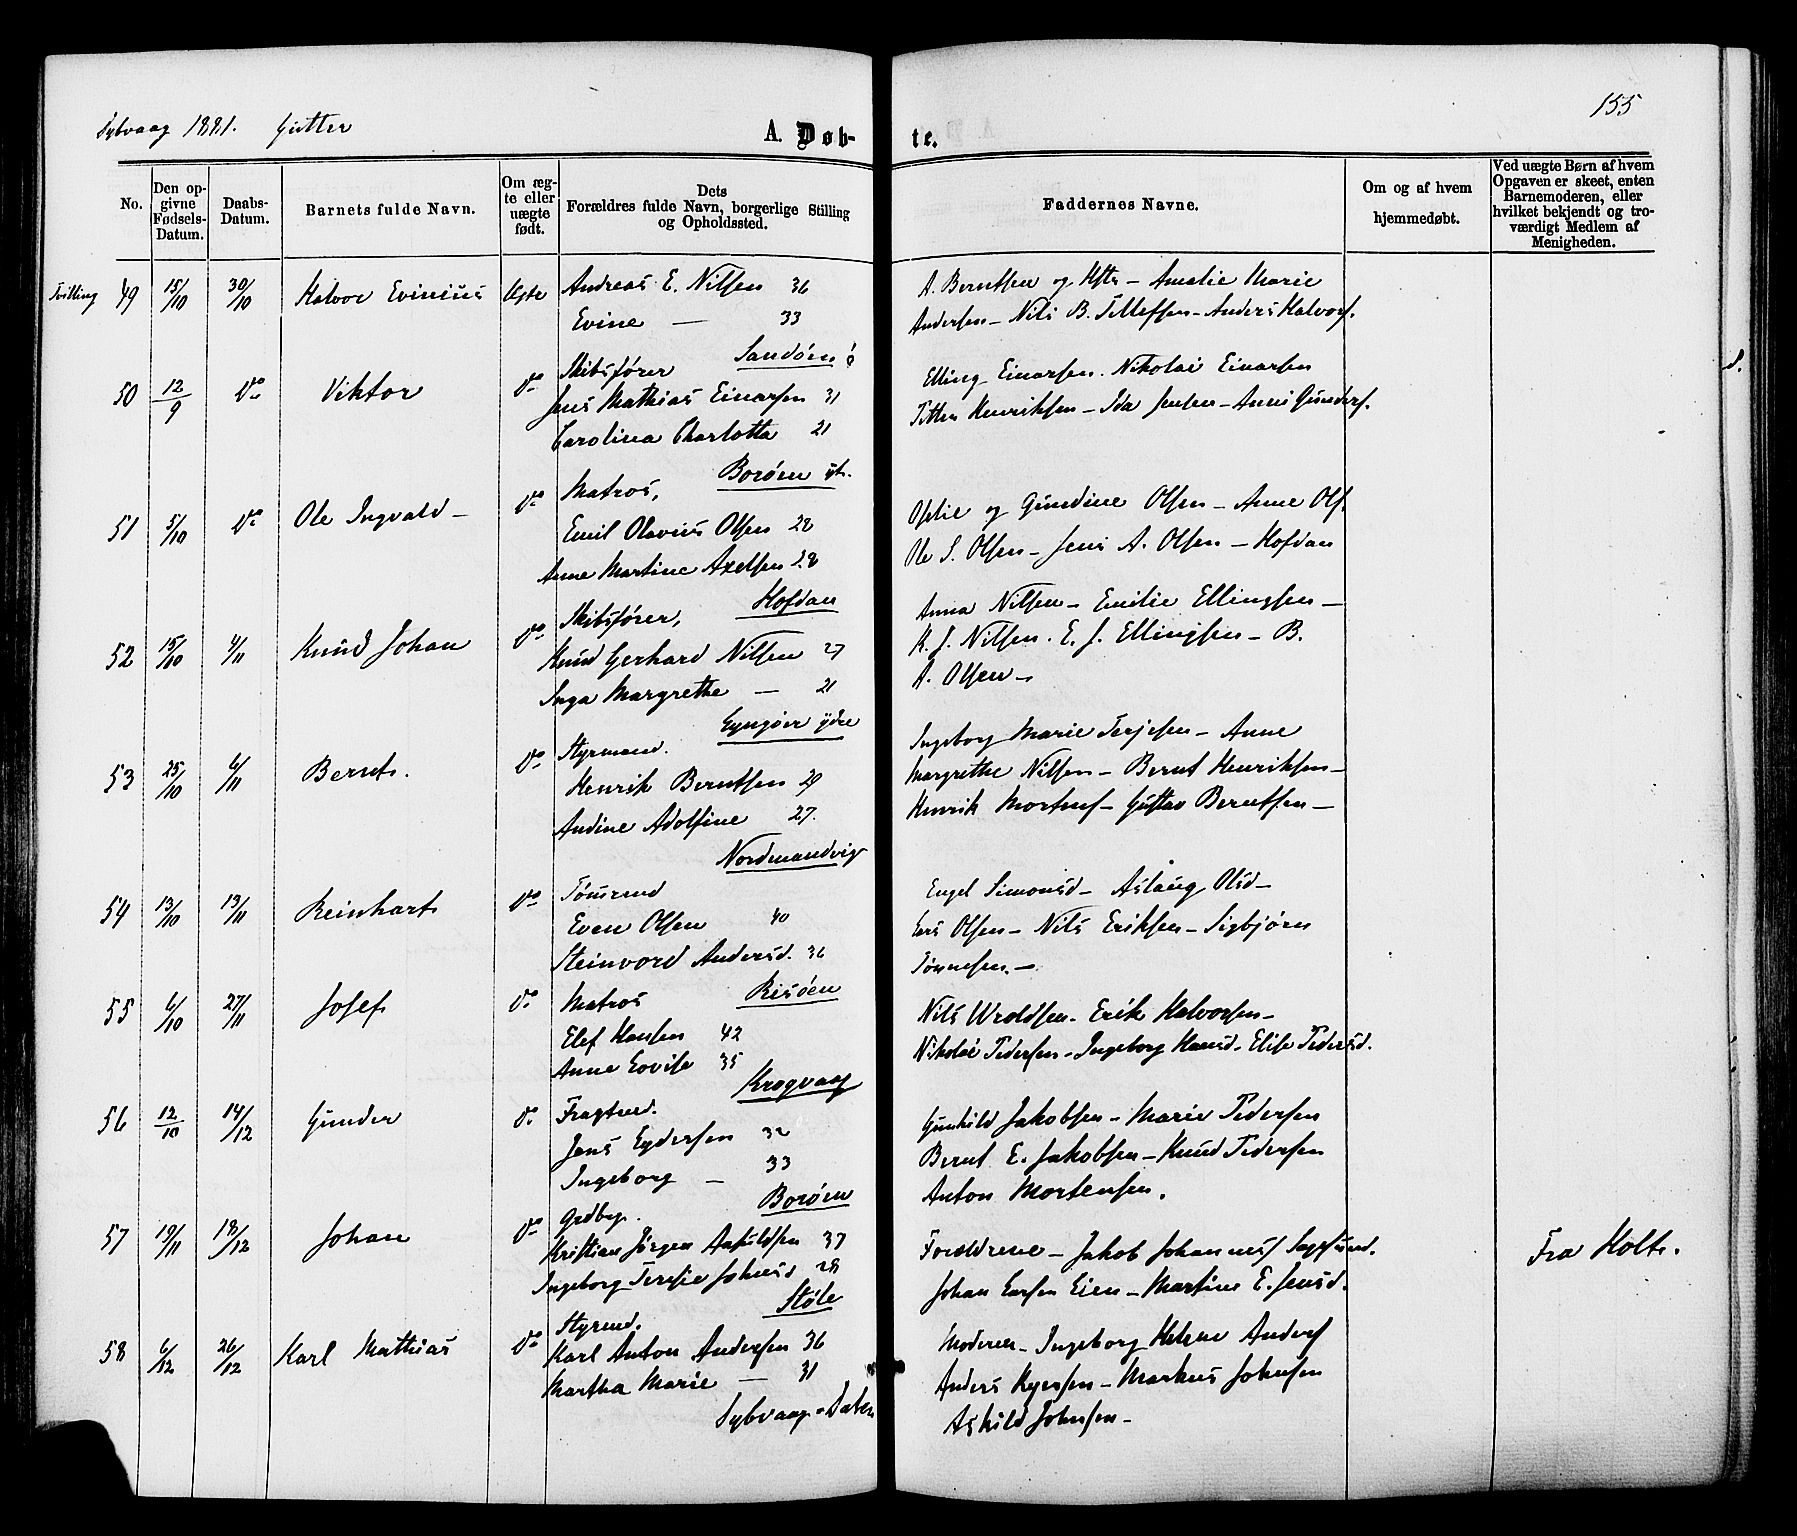 155
Dybvaag 1881. Gutter
A. Døb- te.
No.
Den opgivne Fødsels-Datum.
Daabs-Datum.
Barnets fulde Navn.
Om ægte eller uægte født.
Dets Forældres fulde Navn, borgerlige Stilling og Opholdssted.
Faddernes Navne.
Om og af hvem hjemmedøbt.
Ved uægte Børn af hvem Opgaven er skeet, enten Barnemoderen, eller hvilket bekjendt og troværdigt Medlem af Menigheden.
Tvilling 49 15/10 30/10 Halvor Evinius Egte Andreas E. Nilsen 36 A. Berntsen og Hstr – Amalie Marie
Evine — 33 Andersen – Nils B. Tellefsen – Anders Halvors.
Sandøen
50 12/9 Do Viktor Do Skibsfører Elling Einarsen. Nikolai Einarsen
Jens Mathias Einarsen 31 Petter Henriksen – Ida Jensen – Anne Gunders.
Carolina Charlotta 21
Borøen yt.
51 5/10 Do Ole Ingvald – Do Matros, og Gundine Olsen – Anne Ols.
Emil Olavius Olsen 28 Ole S. Olsen – Jens A. Olsen – Hofdan
Anne Martine Axelsen 28
Hofdan
52 15/10 4/11 Knud Johan Do Skibsfører, Anna Nilsen – Emilie Ellingsen –
Knud Gerhard Nilsen 27 K. J. Nilsen. E. J. Ellingsen – B.
Inga Margrethe — 21 A. Olsen –
Lyngøer ydre
53 25/10 6/11 Bernt. Do Styrmand. Ingeborg Marie Terjesen – Anne
Henrik Berntsen 29 Margrethe Nilsen – Bernt Henriksen –
Andine Adolfine 27. Henrik Mortens – Gustav Berntsen –
Nordmandvig
54 13/10 13/11 Reinhart Do Tømrmd Engel Simonsd – Aslaug Olsd –
Even Olsen 40 Lars Olsen – Nils Eriksen – Sigbjørn
Steinvord Andersd. 36 Tønnesen. –
Risøen
55 6/10 27/11 Josef Do Matros Nils Wroldsen. Erik Halvorsen –
Elef Hansen 42 Nikolai Pedersen – Ingeborg Hansd – Elise Pedersd.
Anne Lovise 35
Krogvaag
56 12/10 14/12 Gunder Do Fragtmd. Gunhild Jakobsen – Marie Pedersen
Jens Eydersen 32 Bernt E. Jakobsen – Knud Pedersen
Ingeborg — 33 Anton Mortensen.
Borøen
57 19/11 18/12 Johan Do Grdbr. Forældrene – Jakob Johannes
Kristian Jørgen 37 Johan Larsen Eien – Martine E. Jensd. Fra Holt.
Ingeborg Teresie Johnsd 28
Støle
58 6/12 26/12 Karl Mathias Do Styrmd. Moderen – Ingeborg Helene Anders
Karl Anton Andersen 36 Anders – Markus Johnsen
Martha Marie — 31 Askild Johnsen –
Dybvaag